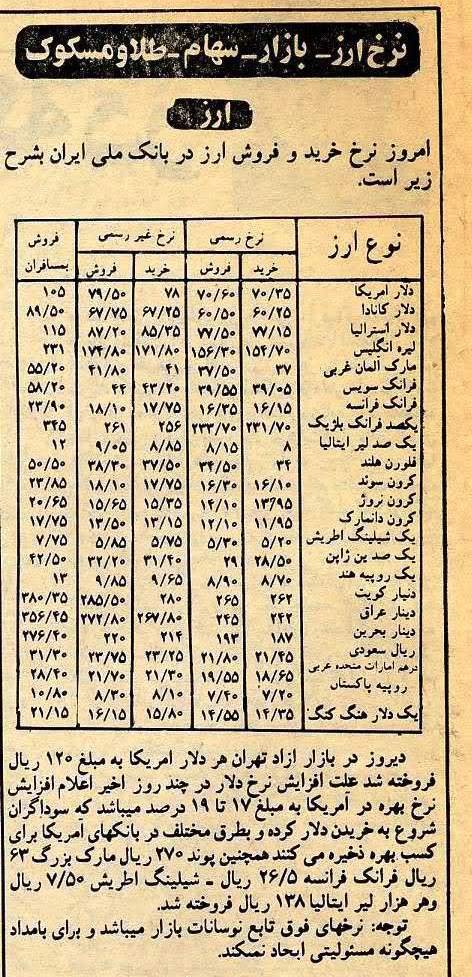 نرخ ارز ـ بازار ـ سهام ـ طلا و مسکوک
ارز
امروز نرخ خرید و فروش ارز در بانک ملی ایران بشرح
زیر است.
نوع ارز نرخ رسمی نرخ غیر رسمی فروش
خرید فروش خرید فروش بمسافران
دلار امریکا ۷۰/۳۵ ۷۰/۶۰ ۷۸ ۷۹/۵۰ ۱۰۵
دلار کانادا ۶۰/۲۵ ۶۰/۵۰ ۶۷/۲۵ ۶۷/۷۵ ۸۹/۵۰
دلار استرالیا ۷۷/۱۵ ۷۷/۵۰ ۸۵/۳۵ ۸۷/۲۰ ۱۱۵
لیره انگلیس ۱۵۴/۷۰ ۱۵۶/۳۰ ۱۷۱/۸۰ ۱۷۴/۸۰ ۲۳۱
مارک المان غربی ۳۷ ۳۷/۵۰ ۴۱ ۴۱/۸۰ ۵۵/۲۰
فرانک سویس ۳۹/۰۵ ۳۹/۵۵ ۴۳/۲۰ ۴۴ ۵۸/۲۰
فرانک فرانسه ۱۶/۱۵ ۱۶/۳۵ ۱۷/۷۵ ۱۸/۱۰ ۲۳/۹۰
یکصد فرانک بلژیک ۲۳۱/۷۰ ۲۳۳/۷۰ ۲۵۶ ۲۶۱ ۳۴۵
یک صد لیر ایتالیا ۸ ۸/۱۵ ۸/۸۵ ۹/۰۵ ۱۲
فلورن هلند ۳۴ ۳۴/۵۰ ۳۷/۵۰ ۳۸/۳۰ ۵۰/۵۰
کرون سوئد ۱۶/۱۰ ۱۶/۳۰ ۱۷/۷۵ ۱۸/۱۰ ۲۳/۸۵
کرون نروژ ۱۳/۹۵ ۱۴/۱۰ ۱۵/۳۵ ۱۵/۶۵ ۲۰/۶۵
کرون دانمارک ۱۱/۹۵ ۱۲/۱۰ ۱۳/۱۵ ۱۳/۵۰ ۱۷/۷۵
یک شیلینگ اطریش ۵/۲۰ ۵/۳۰ ۵/۷۵ ۵/۸۵ ۷/۷۵
یک صد ین ژاپن ۲۸/۵۰ ۲۹ ۳۱/۴۰ ۳۲/۲۰ ۴۲/۵۰
یک روپیه هند ۸/۷۰ ۸/۹۰ ۹/۶۵ ۹/۸۵ ۱۳
دنیار کویت ۲۶۲ ۲۶۵ ۲۸۰ ۲۸۵/۵۰ ۳۸۰/۳۵
دینار عراق ۲۴۲ ۲۴۵ ۲۶۷/۸۰ ۲۷۲/۸۰ ۳۵۶/۴۵
دینار بحرین ۱۸۷ ۱۹۳ ۲۱۴ ۲۲۰ ۲۷۶/۴۰
ریال سعودی ۲۱/۴۵ ۲۱/۸۰ ۲۳/۲۵ ۲۳/۷۵ ۳۱/۳۰
درهم امارات متحده عربی ۱۸/۶۵ ۱۹/۵۵ ۲۱/۳۰ ۲۱/۷۰ ۲۸/۴۰
روپیه پاکستان ۷/۲۰ ۷/۴۰ ۸/۱۰ ۸/۳۰ ۱۰/۸۰
یک دلار هنگ کنگ ۱۴/۳۵ ۱۴/۵۵ ۱۵/۸۰ ۱۶/۱۵ ۲۱/۱۵
دیروز در بازار ازاد تهران هر دلار امریکا به مبلغ ۱۲۰ ریال
فروخته شد علت افزایش نرخ دلار در چند روز اخیر اعلام افزایش
نرخ بهره در آمریکا به مبلغ ۱۷ تا ۱۹ درصد میباشد که سوداگران
شروع به خریدن دلار کرده و بطرق مختلف در بانکهای آمریکا برای
کسب بهره ذخیره می کنند همچنین پوند ۲۷۰ ریال مارک بزرگ ۶۳
ریال فرانک فرانسه ۲۶/۵ ریال ـ شیلینگ اطریش ۷/۵۰ ریال
وهر هزار لیر ایتالیا ۱۳۸ ریال فروخته شد.
توجه: نرخهای فوق تابع نوسانات بازار میباشد و برای بامداد
هیچگونه مسئولیتی ایجاد نمیکند.